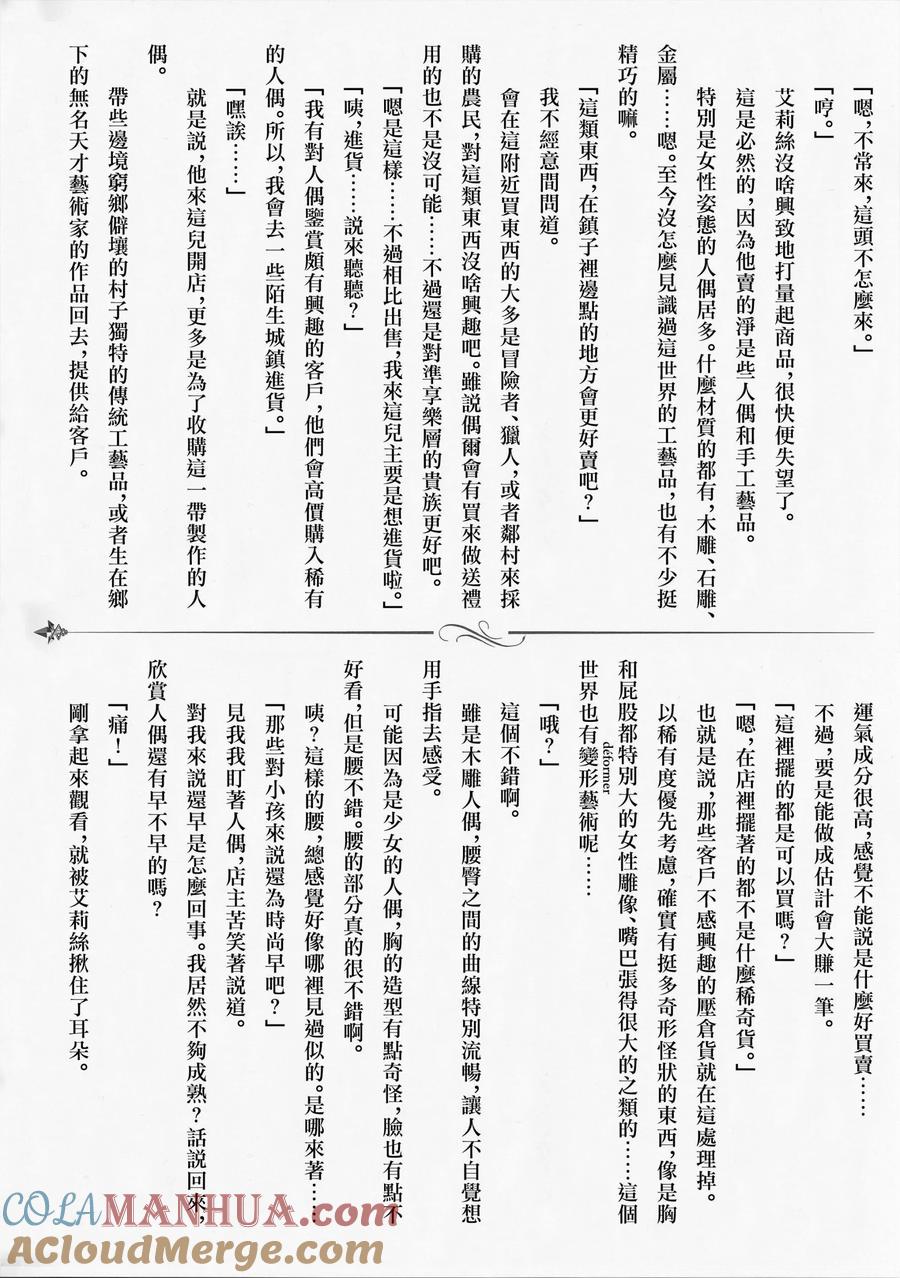 「嗯，不常來，這頭不怎麼來。」
「哼。」
艾莉絲沒啥興致地打量起商品，很快便失望了。
這是必然的，因為他賣的淨是些人偶和手工藝品。
特別是女性姿態的人偶居多。什麼材質的都有，木雕、石雕、
金屬……嗯。至今沒怎麼見識過這世界的工藝品，也有不少挺
精巧的嘛。
「這類東西，在鎮子裡邊點的地方會更好賣吧？」
我不經意間問道。
會在這附近買東西的大多是冒險者、獵人，或者鄰村來採
購的農民，對這類東西沒啥興趣吧。雖說偶爾會有買來做送禮
用的也不是沒可能……不過還是對準享樂層的貴族更好吧。
「嗯是這樣……不過相比出售，我來這兒主要是想進貨啦。」
「咦，進貨……說來聽聽？」
「我有對人偶鑒賞頗有興趣的客戶，他們會高價購入稀有
的人偶。所以，我會去一些陌生城鎮進貨。」
「嘿誒……」
就是說，他來這兒開店，更多是為了收購這一帶製作的人
偶。
帶些邊境窮鄉僻壤的村子獨特的傳統工藝品，或者生在鄉
下的無名天才藝術家的作品回去，提供給客戶。
運氣成分很高，感覺不能說是什麼好買賣……
不過，要是能做成估計會大賺一筆。
「這裡擺的都是可以買嗎？」
「嗯，在店裡擺著的都不是什麼稀奇貨。」
也就是說，那些客戶不感興趣的壓倉貨就在這處理掉。
以稀有度優先考慮，確實有挺多奇形怪狀的東西，像是胸
和屁股都特別大的女性雕像、嘴巴張得很大的之類的……這個
世界也有變形藝術呢……
déformer
「哦？」
這個不錯啊。
雖是木雕人偶，腰臀之間的曲線特別流暢，讓人不自覺想
用手指去感受。
可能因為是少女的人偶，胸的造型有點奇怪，臉也有點不
好看，但是腰不錯。腰的部分真的很不錯啊。
咦？這樣的腰，總感覺好像哪裡見過似的。是哪來著……
「那些對小孩來說還為時尚早吧？」
見我我盯著人偶，店主苦笑著說道。
對我來說還早是怎麼回事。我居然不夠成熟？話說回來，
欣賞人偶還有早不早的嗎？
「痛！」
剛拿起來觀看，就被艾莉絲揪住了耳朵。
COLAMANHUA.com
ACloudMerge.com